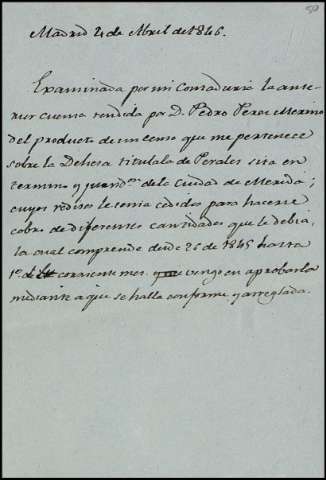 50
Madrid 4 de Abril de 1846.
Examinada por mi Contaduria la ante-
rior cuenta rendida por D. Pedro Perez Merino
del producto de un censo que me pertenece
sobre la Dehesa titulada de Perales sita en
termino y jurisd.on de la Ciudad de Merida;
cuyos reditos le tenia cedidos para hacerse
cobro de diferentes cantidades que le debia,
la cual comprende desde 26 de 1845 hasta
1º de corriente mes. vengo en aprobarla
mediante a que se halla conforme y arreglada.